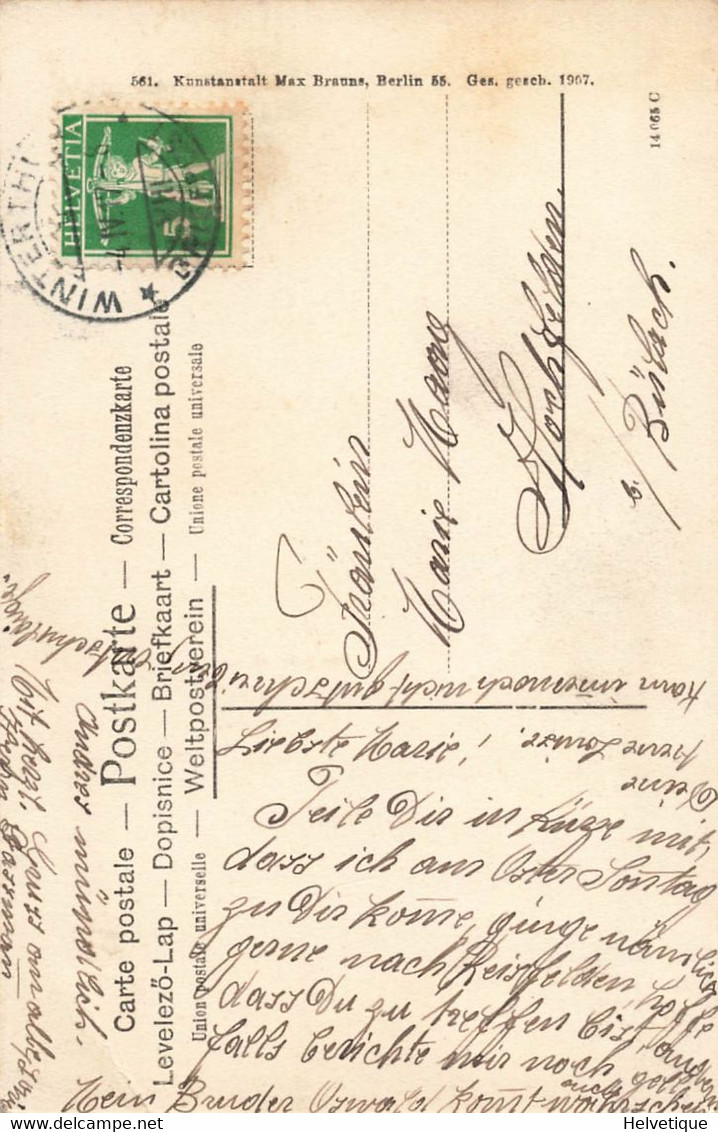 561. Kunstanstalt Max Brauns, Berlin 55. Ges. gesch. 1907.
14 065 C
HELVETIA
5
WINTERTHUR
Carte postale — Postkarte — Correspondenzkarte
Levelező-Lap — Dopisnice — Briefkaart — Cartolina postale
Union postale universelle — Weltpostverein — Unione postale universale
Fräulein
Marie Maag
Hochfelden.
b. Bülach.
Liebste Marie!
Teile Dir in Kürze mit,
dass ich am Oster Sontag
zu Dir kome, ginge nämlich
gerne nach
dass Du zu treffen bist,
falls berichte mir noch
Mein Bruder Oswald komt auch
Andres mündlich.
Mit herzl. Gruss
Deine
Kann immer noch nicht gut schreiben,